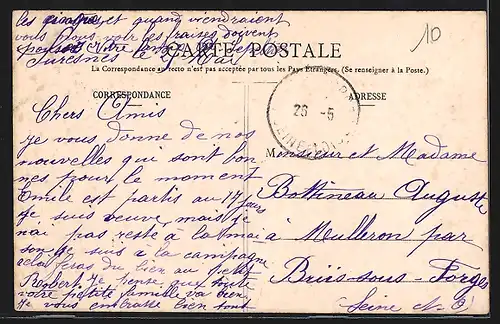 les et quand viendraient
vous nous voir les fraises doivent
pousser votre
Suresnes le 27 Mai
10
CARTE POSTALE
La Correspondance au recto n'est pas acceptée par tous les Pays Étrangers. (Se renseigner à la Poste.)
CORRESPONDANCE
ADRESSE
26 -5
Chers Amis
Je vous donne de nos
nouvelles qui sont bon
nes pour le moment
Emile est partis au 17 jours
Je suis veuve mais je
n'ai pas reste à la mai
son je suis à la campagne
cela feras du bien au petit
Robert. Je pense que toute
votre petite famille va bien
Je vous embrasse bien tous
Monsieur et Madame
Bottineau Auguste
à Mulleron par
Briis-sous-Forges
Seine & O